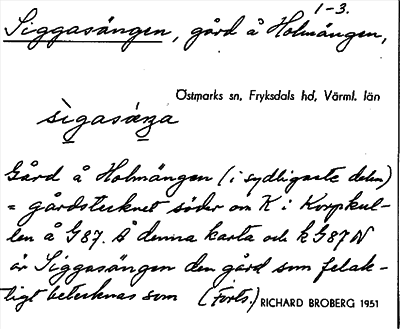 1-3.
Siggasängen, gård å Holmängen,
Östmarks sn, Fryksdals hd, Värml. län
sìgasæŋa
Gård å Holmängen (i sydligaste delen)
= gårdstecknet söder om K i Korpkul-
len å G87. Å denna karta och kG87N
är Siggasängen den gård som felak-
tigt betecknas som (forts.)
RICHARD BROBERG 1951